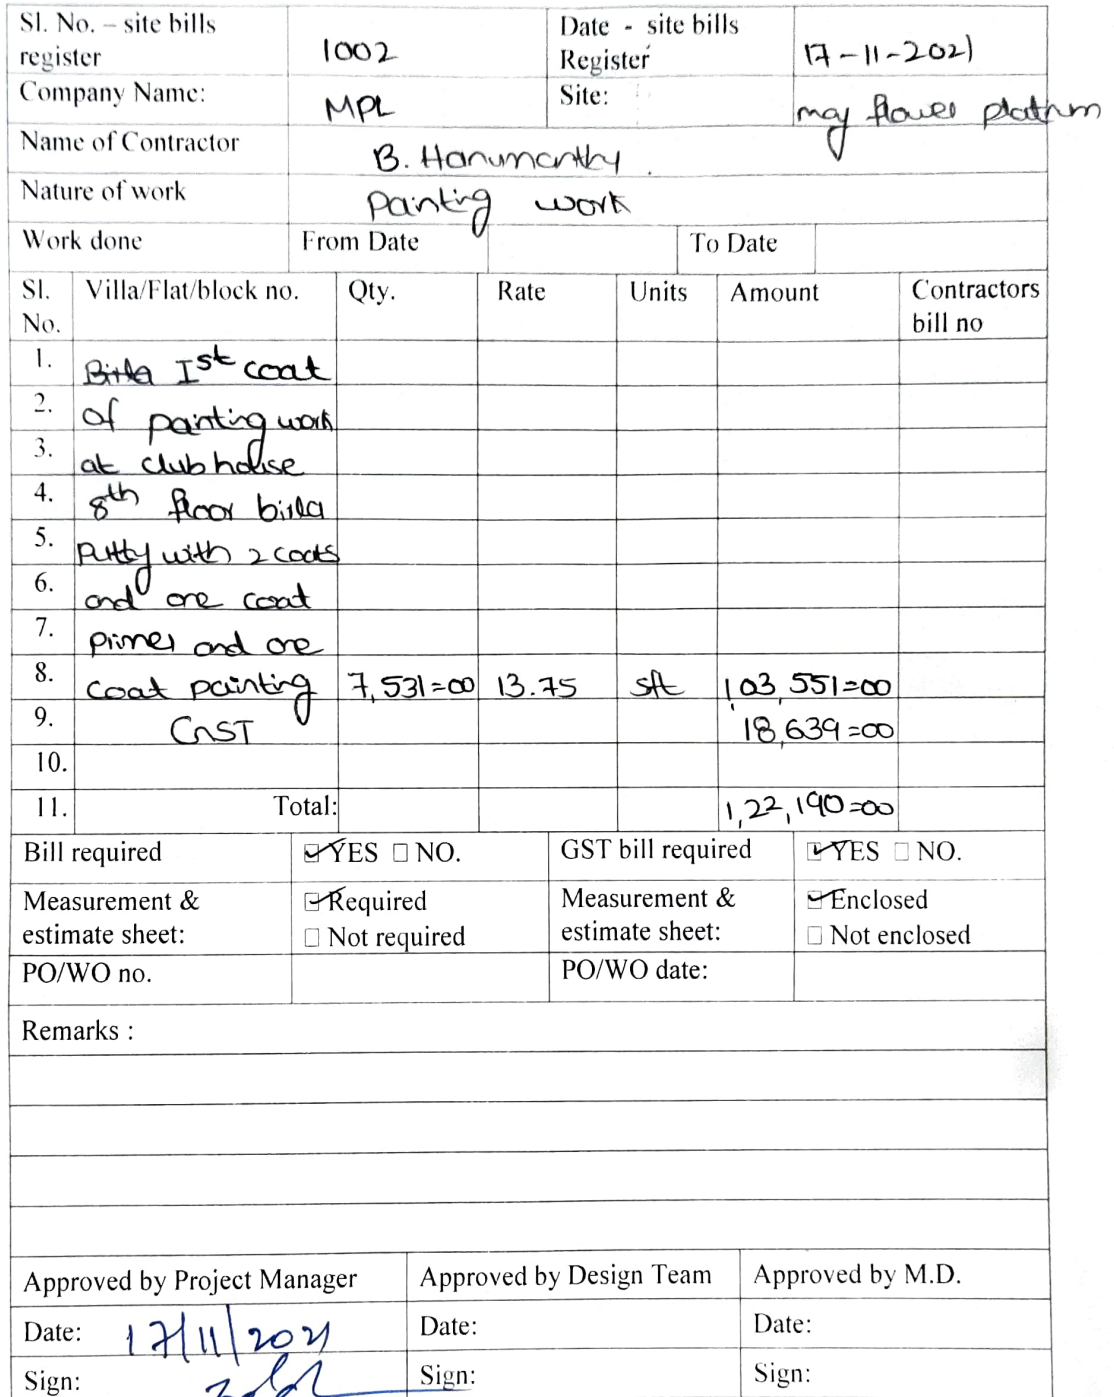 Sl. No. – site bills register 1002 Date - site bills Register 17-11-2021
Company Name: MPL Site: may flower platinm
Name of Contractor B. Hanumanthy
Nature of work Painting work
Work done From Date To Date
Sl. No. Villa/Flat/block no. Qty. Rate Units Amount Contractors bill no
1. Birla Ist coat
2. of painting work
3. at club house
4. 8th floor birla
5. Putty with 2 coats
6. and one coat
7. primer and one
8. coat painting 7,531=00 13.75 sft 103,551=00
9. GST 18,639=00
10.
11. Total: 1,22,190=00
Bill required YES NO. GST bill required YES NO.
Measurement & estimate sheet: Required Not required Measurement & estimate sheet: Enclosed Not enclosed
PO/WO no. PO/WO date:
Remarks :
Approved by Project Manager Approved by Design Team Approved by M.D.
Date: 17/11/2021 Date: Date:
Sign: Sign: Sign: